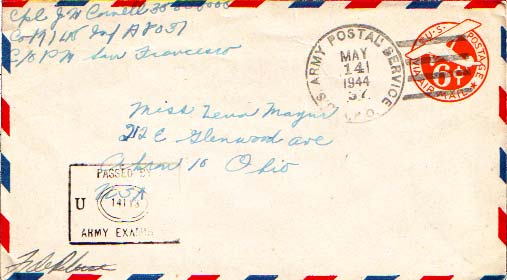 Cpl J W Cornell
Co A
c/o P M San Francisco
U.S. ARMY POSTAL SERVICE
MAY
14
1944
A.P.O.
U.S. POSTAGE
6¢
VIA AIR MAIL
Miss Lena Mayur
212 E Glenwood ave
Akron 10 Ohio
USA
PASSED BY
U
ARMY EXAMINER